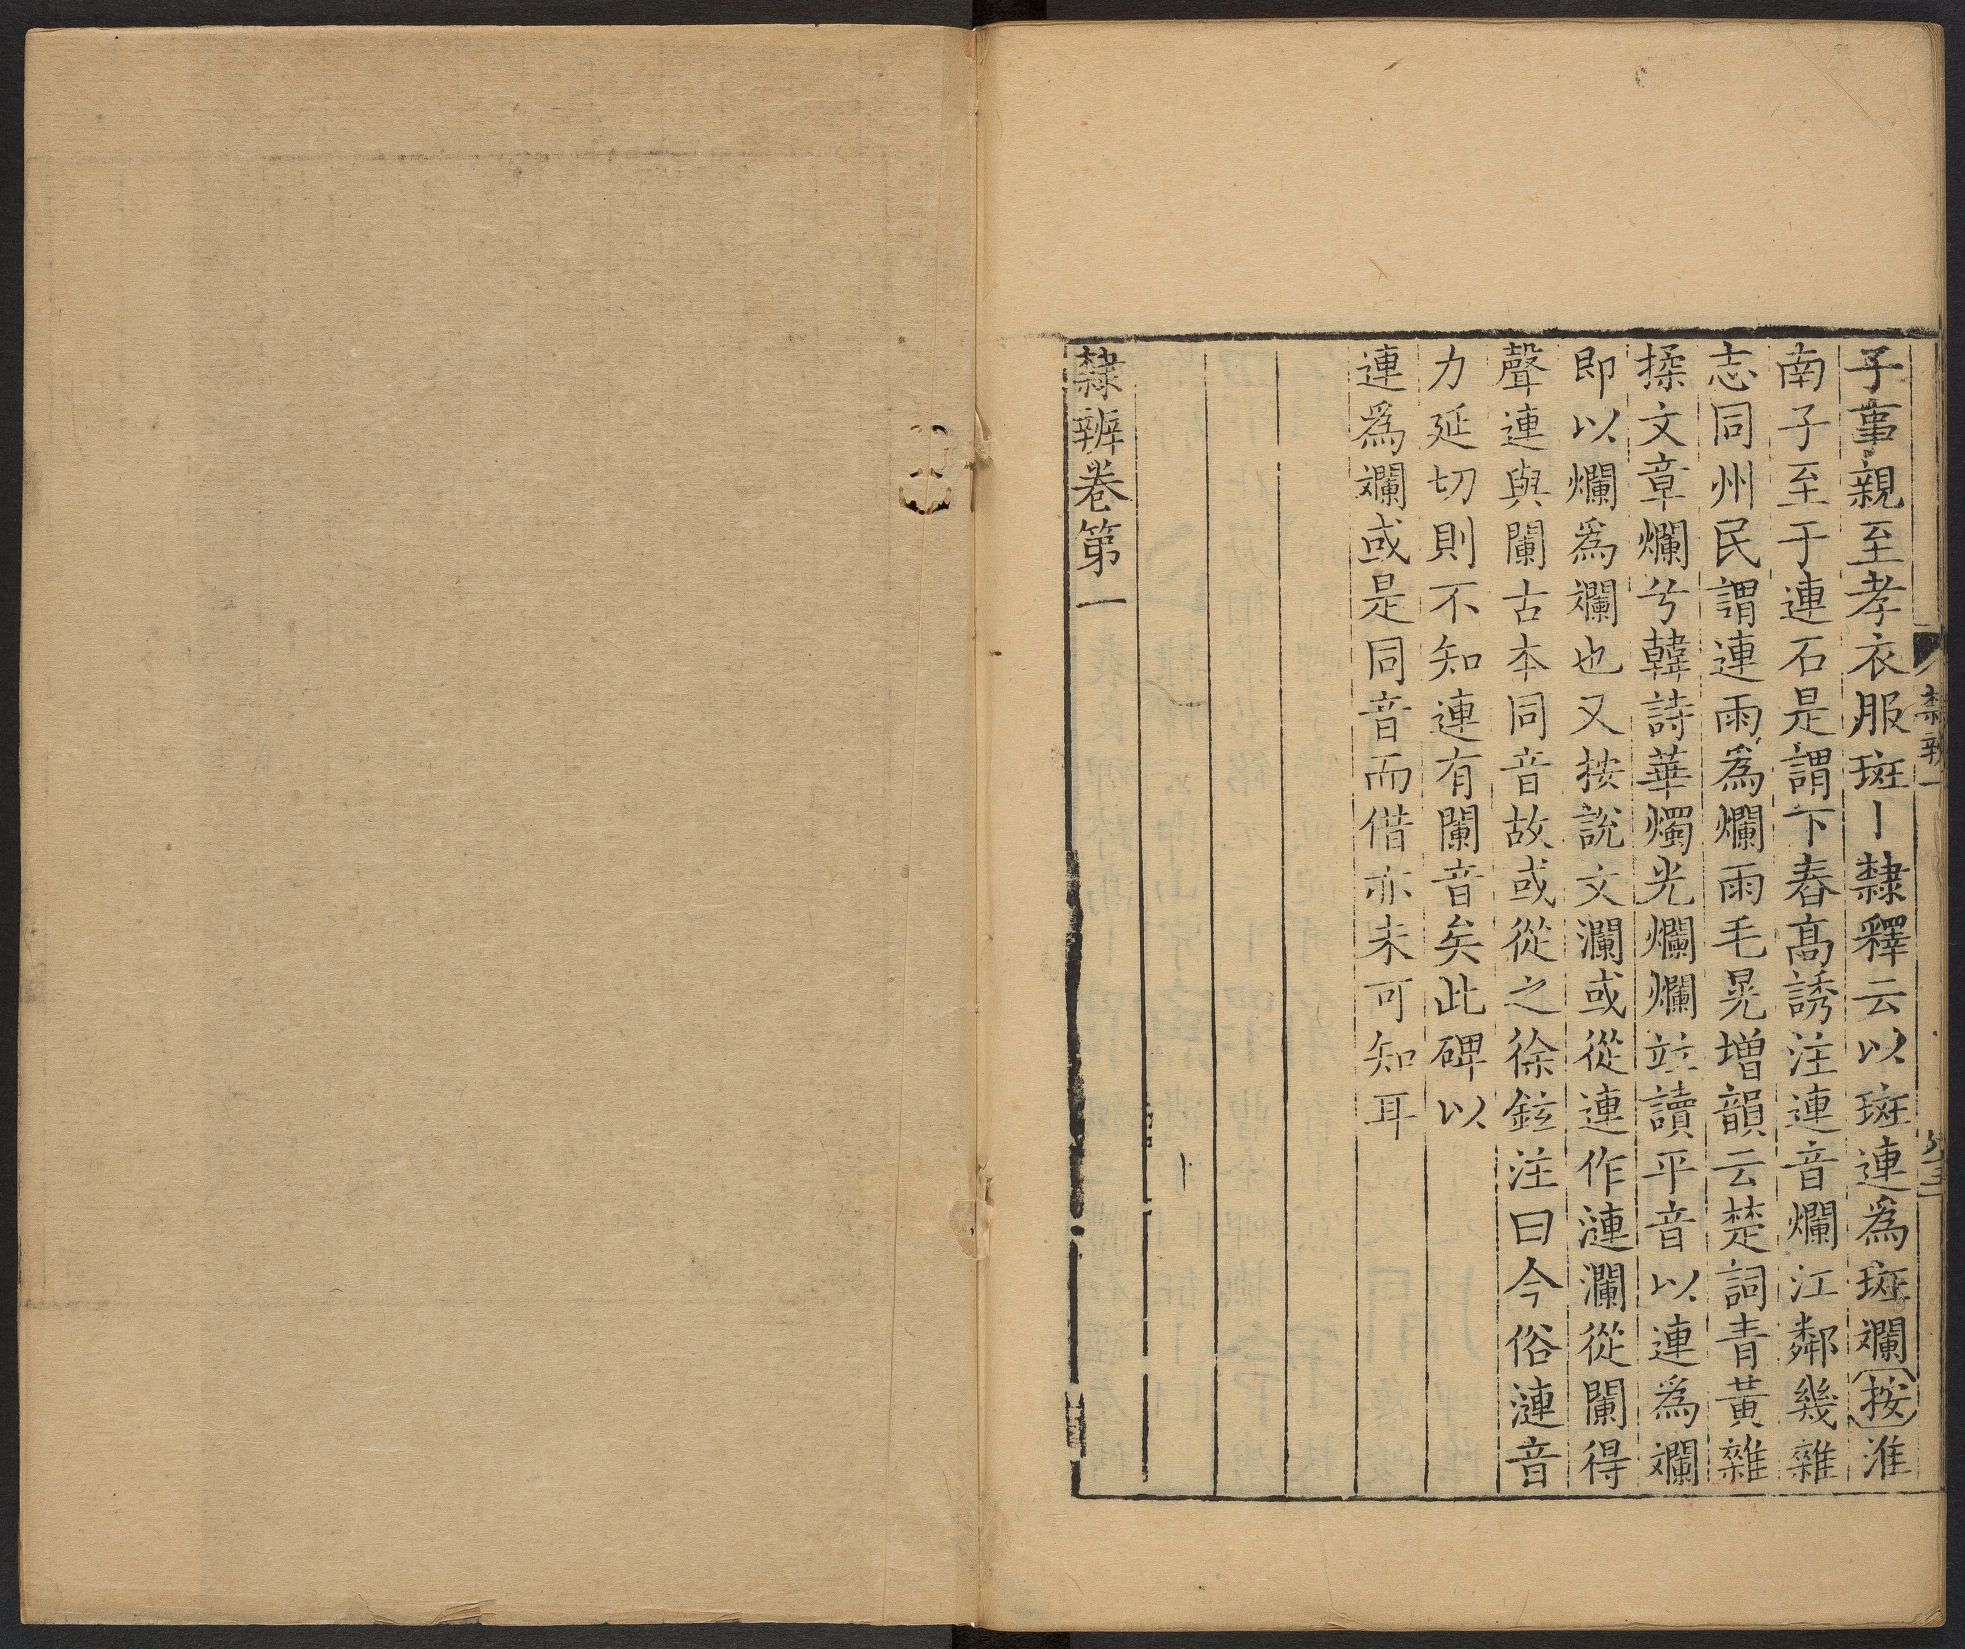 子事親至孝衣服斑丨隸釋云以斑連爲斑斕按淮
南子至于連石是謂下舂高誘注連音爛江鄰幾雜
志同州民謂連雨爲爛雨毛晃增韻云楚詞青黃雜
揉文章爛兮韓詩華燭光爛爛竝讀平音以連爲斕
即以爛爲斕也又按說文瀾或從連作漣瀾從闌得
聲連與闌古本同音故或從之徐鉉注曰今俗漣音
力延切則不知連有闌音矣此碑以
連爲斕或是同音而借亦未可知耳
隸辨卷第一